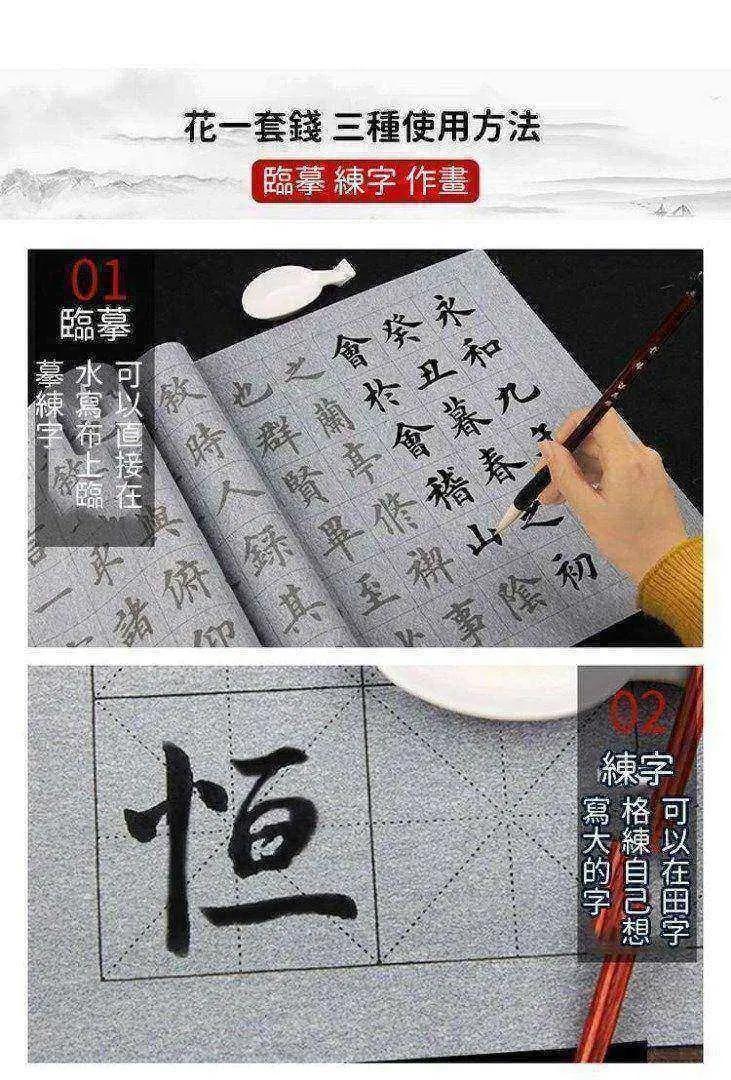 花一套錢 三種使用方法
臨摹 練字 作畫
01
臨摹
可以直接在
水寫布上臨
摹練字
永和九年
癸丑暮春之初
會於會稽山陰
之蘭亭修禊事
也群賢畢至
敘時人錄其
與俯仰
取諸
02
練字
可以在田字
格練自己想
寫大的字
恒